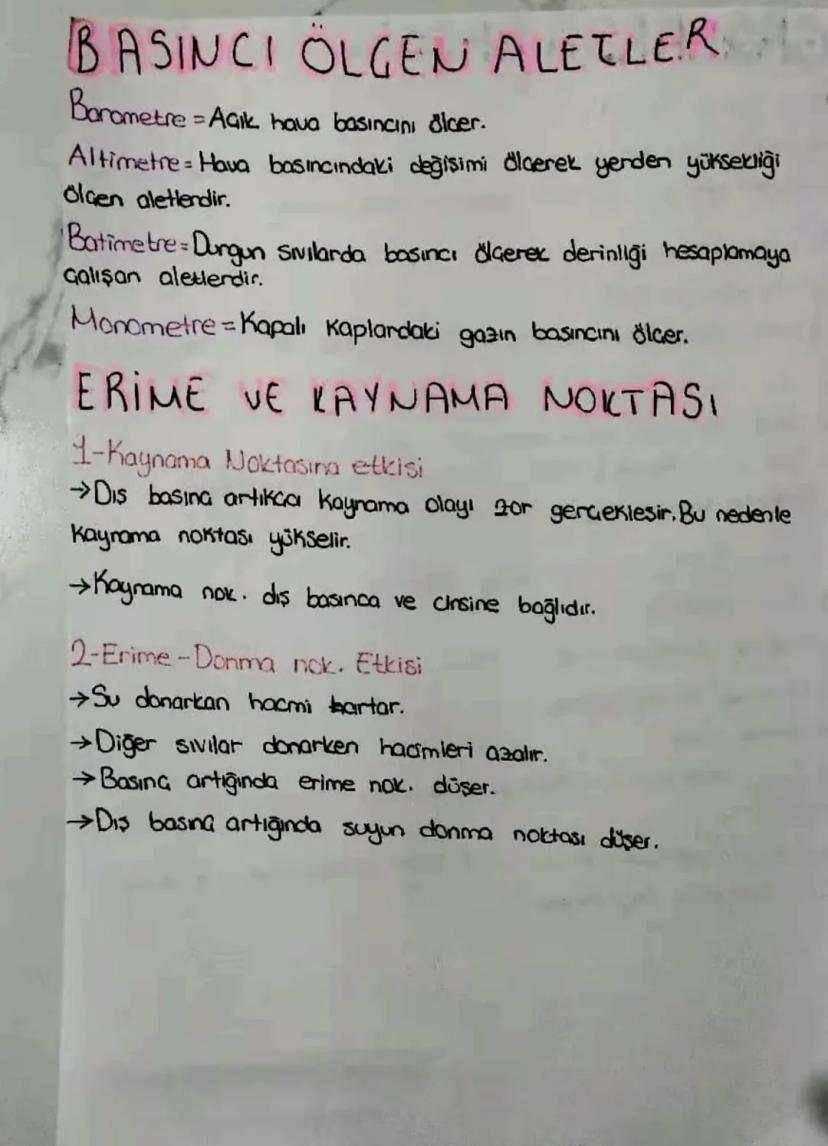 BASINCI ÖLÇEN ALETLER
Barometre = Açık hava basıncını ölçer.
Altimetre = Hava basıncındaki değişimi ölçerek yerden yüksekliği
ölçen aletlerdir.
Batimetre = Durgun sıvılarda basıncı ölçerek derinliği hesaplamaya
çalışan aletlerdir.
Monometre = Kapalı kaplardaki gazın basıncını ölçer.
ERİME VE KAYNAMA NOKTASI
1-Kaynama Noktasına etkisi
→ Dış basınç artıkça kaynama olayı zor gerçekleşir. Bu nedenle
kaynama noktası yükselir.
→ Kaynama nok. dış basınca ve cinsine bağlıdır.
2-Erime - Donma nok. Etkisi
→ Su donarkan hacmi artar.
→ Diğer sıvılar donarken hacimleri azalır.
→ Basınç artığında erime nok. düşer.
→ Dış basınç artığında suyun donma noktası düşer.